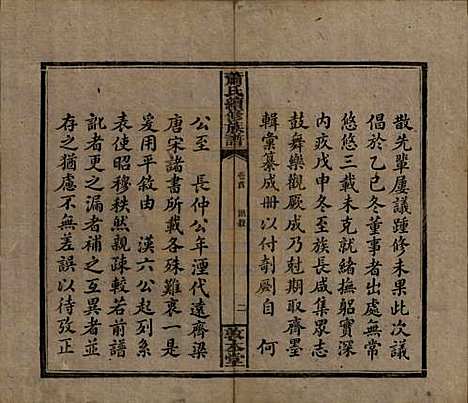 散先輩屢議踵修未果此次議
倡於乙巳冬董事者出處無常
悠悠三載未克就緒撫躬實深
内疚戊申冬至族長咸集眾志
鼓舞樂觀厥成乃尅期取齊墨
輯彙纂成册以付剞劂自　何
蕭氏續修族譜
卷首
二
公至　長仲公年湮代遠齊梁
唐宋諸書所載各殊難衷一是
爰用平敘由　漢六公起列系
表使昭穆秩然親疎較若前譜
訛者更之漏者補之互異者並
存之猶慮不無差誤以待攷正